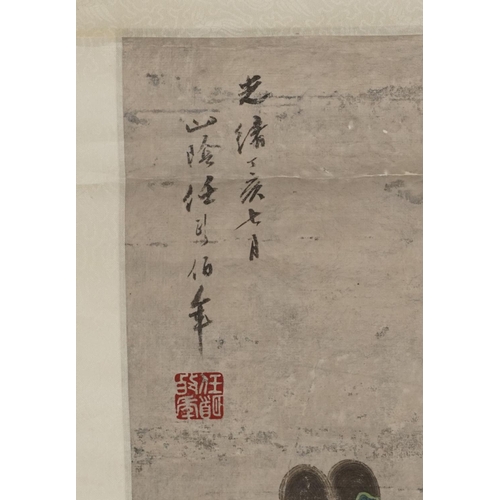 光緒丁亥七月
山陰任頤伯年
任頤
伯年